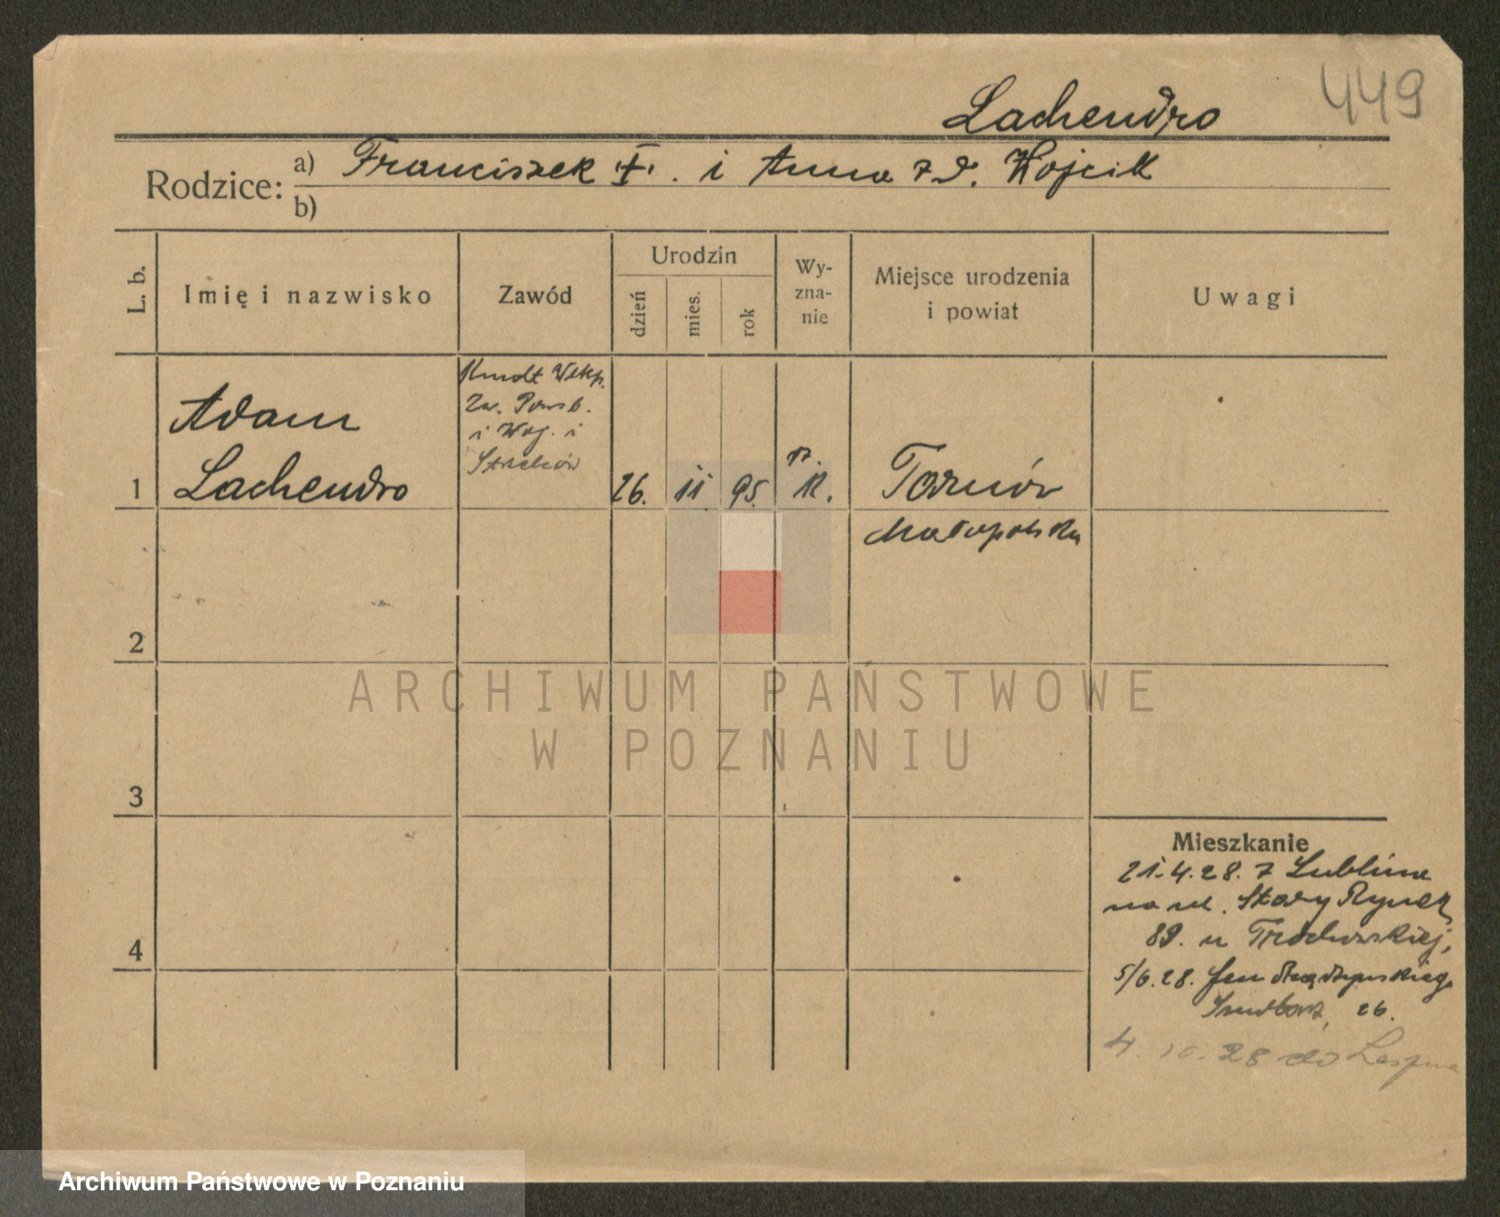 449
Lachendro
Rodzice: a) Franciszek †. i Anna z d. Wojcik
b)
L. b. Imię i nazwisko Zawód Urodzin dzień mies. rok Wyznanie Miejsce urodzenia i powiat Uwagi
Adam
Zw.
i
1 Lachendro 26. 11 95. r. k. Tarnów
Małopolska
2
3
Mieszkanie
21.4.28. z Lublina
na ul. Stary Rynek
4 89. u
5/6.28.
26.
4. 10. 28 do
ARCHIWUM PAŃSTWOWE
W POZNANIU
Archiwum Państwowe w Poznaniu